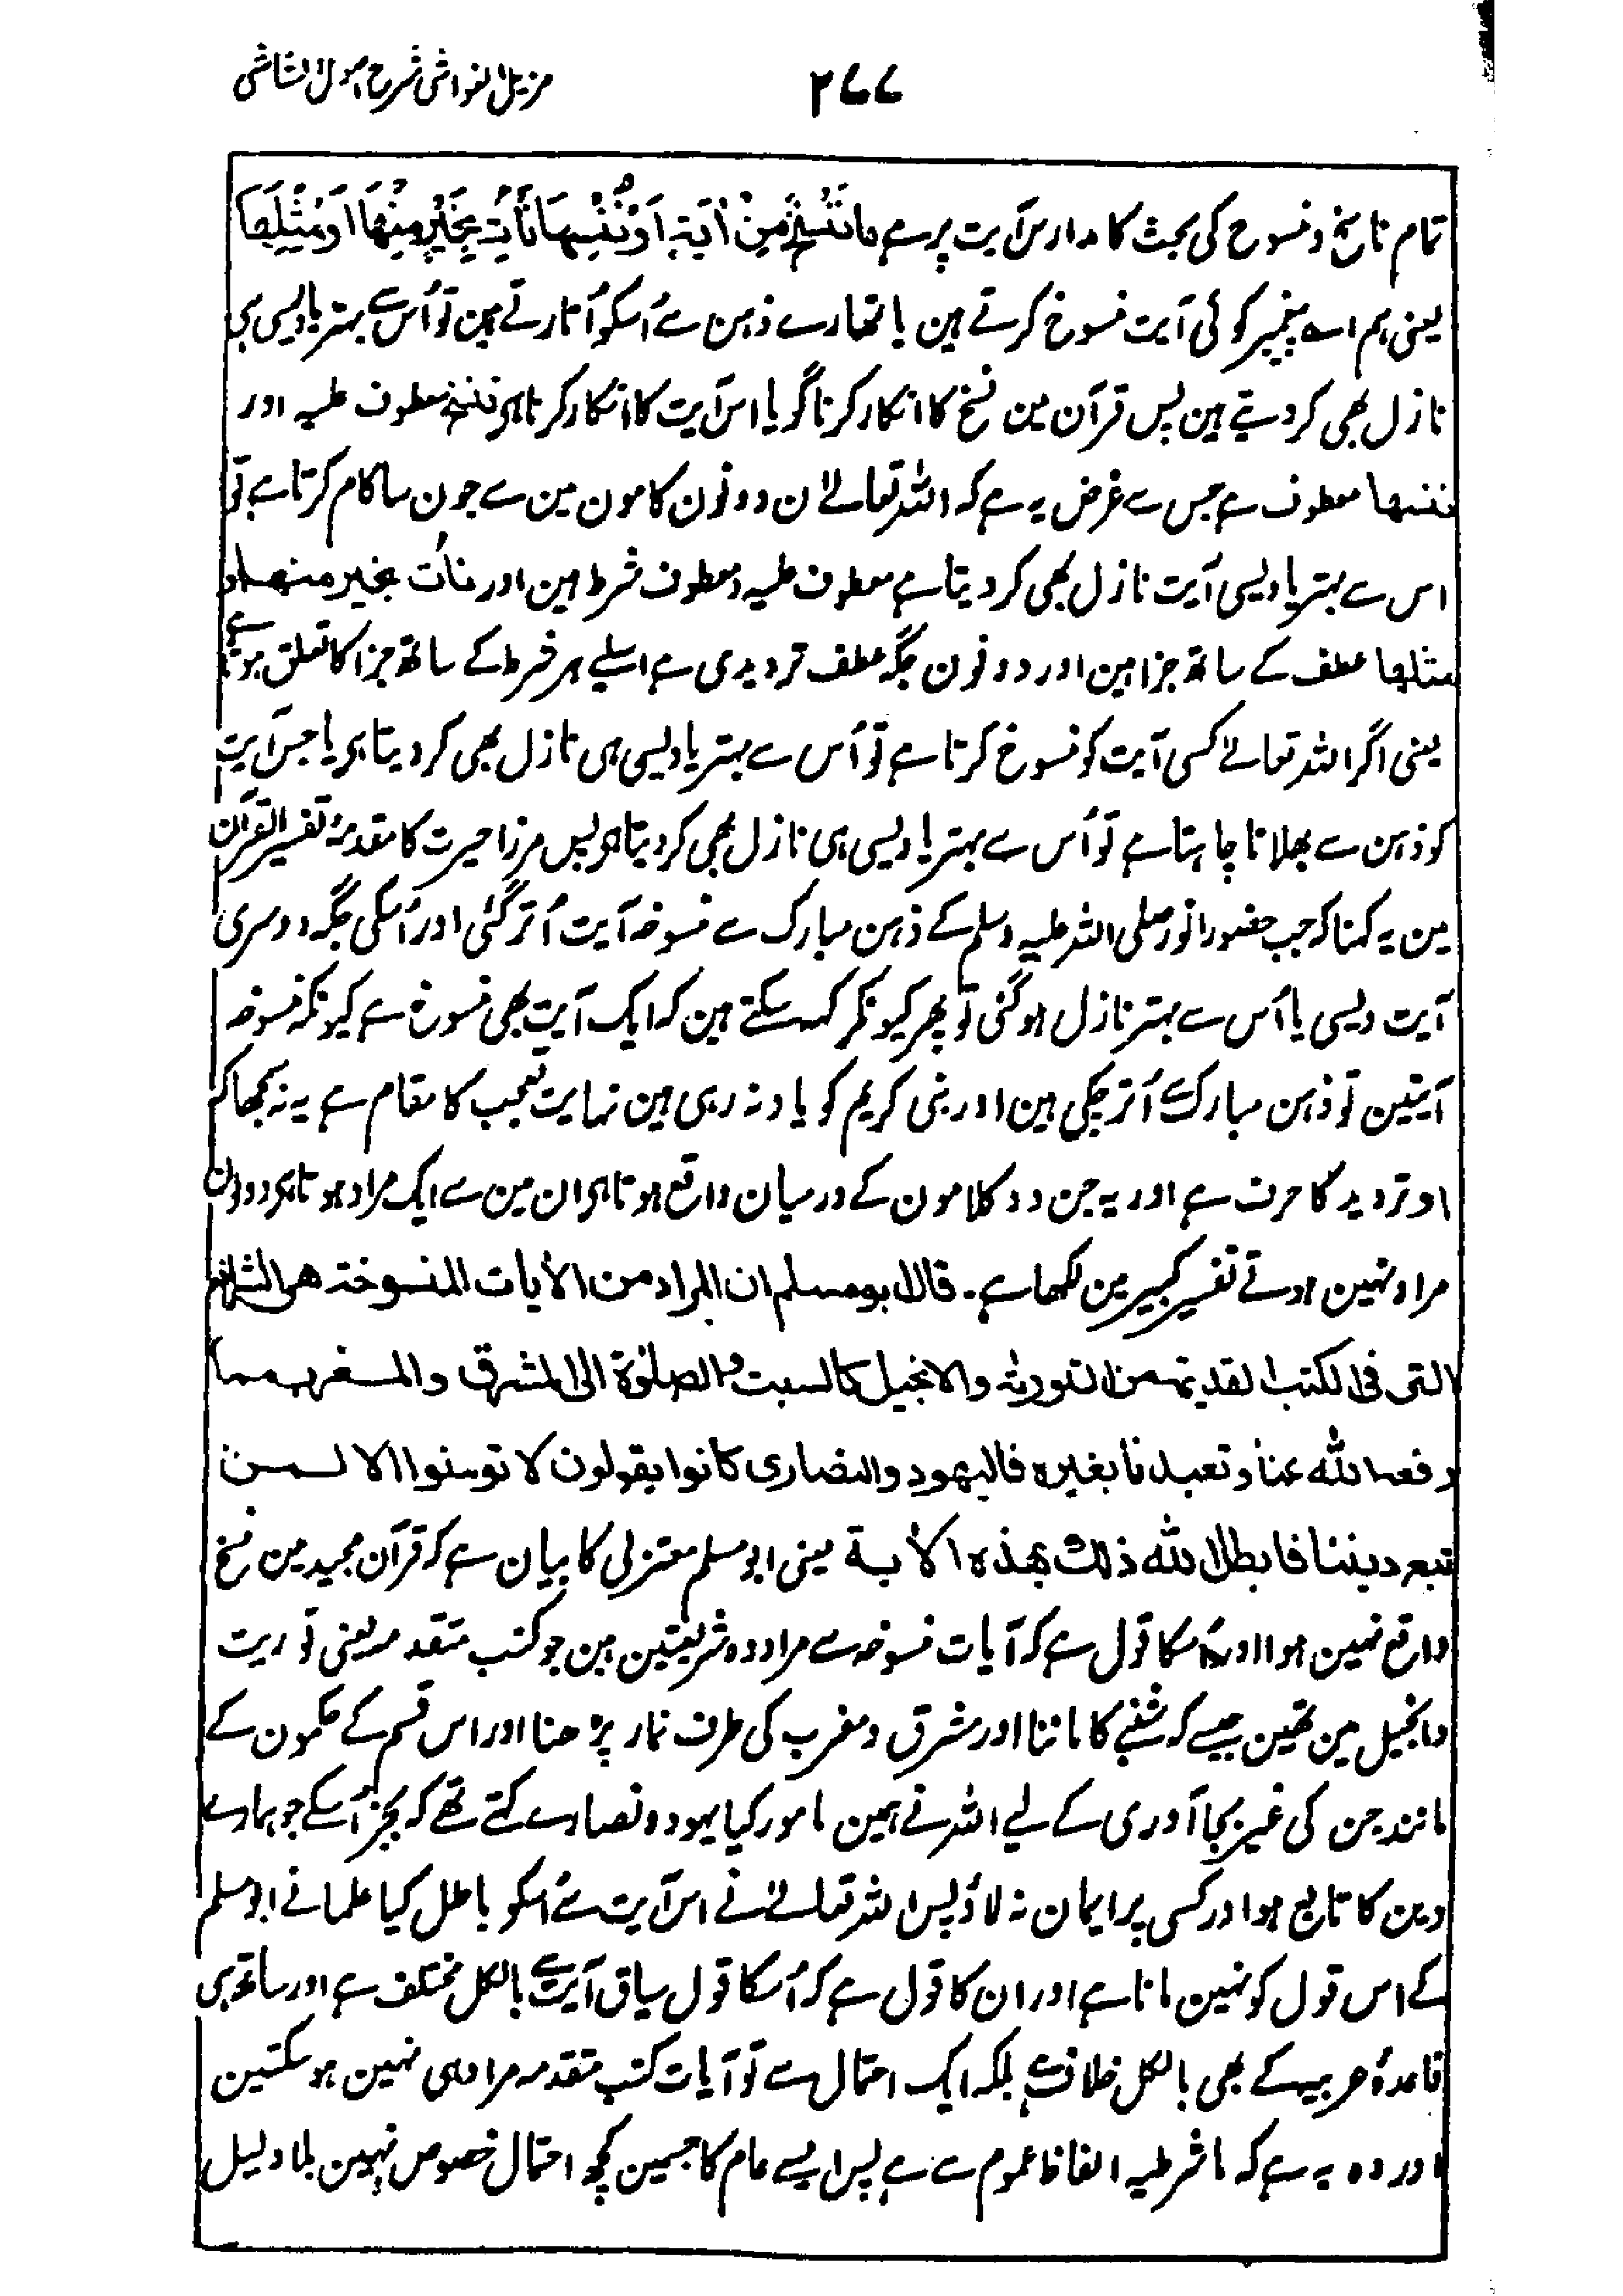 مزیل الغواشی شرح اصول الشاشی
۲۷۷
تمام ناسخ و منسوخ کی بحث کا مدار اس آیت پر ہے مَا نَنْسَخْ مِنْ اٰیَۃٍ اَوْ نُنْسِهَا نَأْتِ بِخَیْرٍ مِنْهَا اَوْ مِثْلِهَا
یعنی ہم اے پیغمبر کوئی آیت منسوخ کرتے ہین یا تمھارے ذہن سے اُسکو اُتارتے ہین تو اُس سے بہتر یا ویسی ہی
نازل بھی کر دیتے ہین پس قرآن مین نسخ کا انکار کرنا گویا اس آیت کا انکار کرنا ہی ننسخ معطوف علیہ اور
ننسها معطوف ہے جس سے غرض یہ ہے کہ اللہ تعالےٰ ان دونون کامون مین سے جون سا کام کرتا ہے تو
اس سے بہتر یا ویسی آیت نازل بھی کر دیتا ہے معطوف علیہ و معطوف شرط ہین اور نأت بخیر منها او
مثلها عطف کے ساتھ جزا ہین اور دونون جگہ عطف تردیدی ہے اسلیے ہر شرط کے ساتھ جزا کا تعلق ہوتا ہے
یعنی اگر اللہ تعالےٰ کسی آیت کو منسوخ کرتا ہے تو اُس سے بہتر یا ویسی ہی نازل بھی کر دیتا ہی یا جس آیت
کو ذہن سے بھلانا چاہتا ہے تو اُس سے بہتر یا ویسی ہی نازل بھی کر دیتا ہی پس مرزا حیرت کا مقدمۂ تفسیر القرآن
مین یہ کہنا کہ جب حضور انور صلی اللہ علیہ وسلم کے ذہن مبارک سے منسوخہ آیت اُتر گئی اور اُسکی جگہ دوسری
آیت ویسی یا اُس سے بہتر نازل ہو گئی تو پھر کیونکر کہہ سکتے ہین کہ ایک آیت بھی منسوخ ہے کیونکہ منسوخہ
آیتین تو ذہن مبارک سے اُتر چکی ہین اور نبی کریم کو یاد نہ رہی ہین نہایت تعجب کا مقام ہے یہ نہ سمجھا کہ
او تردید کا حرف ہے اور یہ جن دو کلامون کے درمیان واقع ہوتا ہی ان مین سے ایک مراد ہوتا ہی دونون
مراد نہین ہوتے تفسیر کبیر مین لکھا ہے۔ قال ابو مسلم ان المراد من الاٰیات المنسوخۃ هی الشرائع
التی فی الکتب القدیمۃ من التوریۃ والانجیل کالسبت والصلوٰۃ الی المشرق والمغرب مما
رفعه اللہ عنا و تعبدنا بغیرہ فالیهود والنصاری کانوا یقولون لا تومنوا الا لمن
تبع دیننا فابطل اللہ ذلک بهذه الاٰیة یعنی ابو مسلم معتزلی کا بیان ہے کہ قرآن مجید مین نسخ
واقع نہین ہوا اور اُسکا قول ہے کہ آیات منسوخہ سے مراد وہ شریعتین ہین جو کتب متقدمہ یعنی توریت
و انجیل مین تھین جیسے کہ شنبے کا ماننا اور مشرق و مغرب کی طرف نماز پڑھنا اور اس قسم کے حکمون کے
مانند جن کی غیر بجا آوری کے لیے اللہ نے ہمین مامور کیا یہود و نصارے کہتے تھے کہ بجز اُسکے جو ہمارے
دین کا تابع ہو اور کسی پر ایمان نہ لاؤ پس اللہ تعالےٰ نے اس آیت سے اُسکو باطل کیا علما نے ابو مسلم
کے اس قول کو نہین مانا ہے اور ان کا قول ہے کہ اُسکا قول سیاق آیت سے بالکل مختلف ہے اور ساتھ ہی
قاعدۂ عربیہ کے بھی بالکل خلاف ہے بلکہ ایک احتمال سے تو آیات کتب متقدمہ مراد ہی نہین ہو سکتین
اور وہ یہ ہے کہ ما شرطیہ الفاظ عموم سے ہے پس ایسے عام کا جسمین کچھ احتمال خصوص نہین بلا دلیل